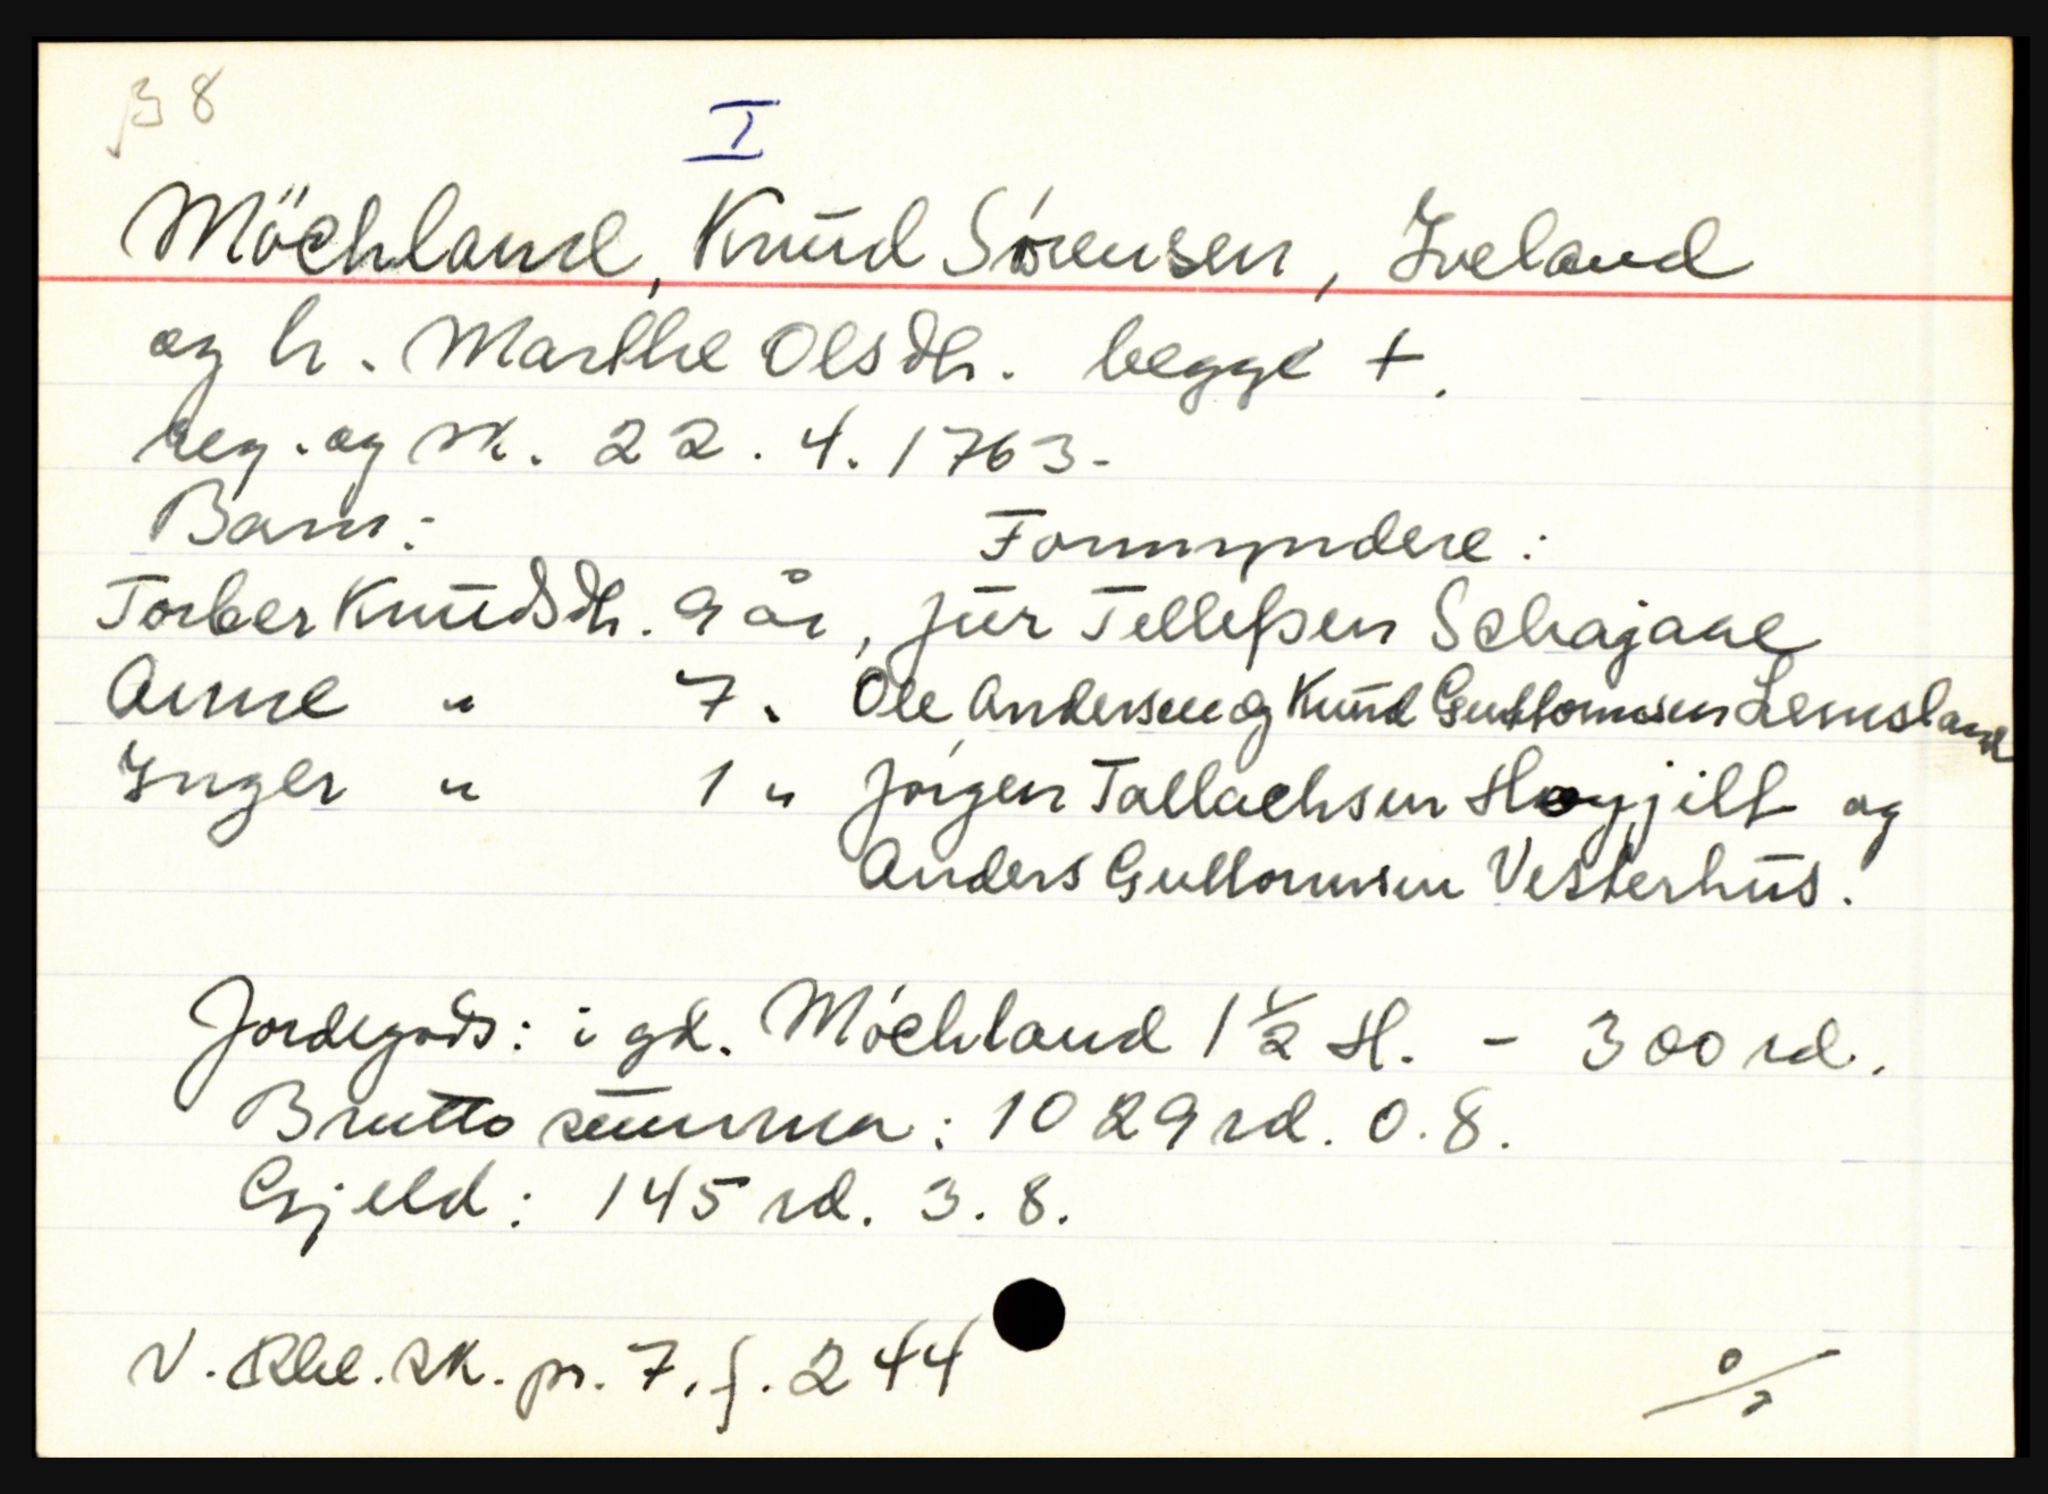 β 8
I
Möchland, Knud Sörensen, Iveland
og h. Marthe Olsdtr. begge +.
reg. og sk. 22. 4. 1763.
Barn: Formyndere:
Torber Knudsdtr. 9 år, Jur Tellefsen Schajaae
Anne " 7 " Ole Andersen og Knud Guttormsen Lemsland
Inger " 1 " Jörgen Tallachsen Høyjilt og
Anders Guttormsen Vesterhus.
Jordegods: i gd. Möchland 1 1/2 H. - 300 rd.
Brutto summa: 1029 rd. 0. 8.
Gjeld: 145 rd. 3. 8.
V. Rbl. sk. pr. 7, f. 244